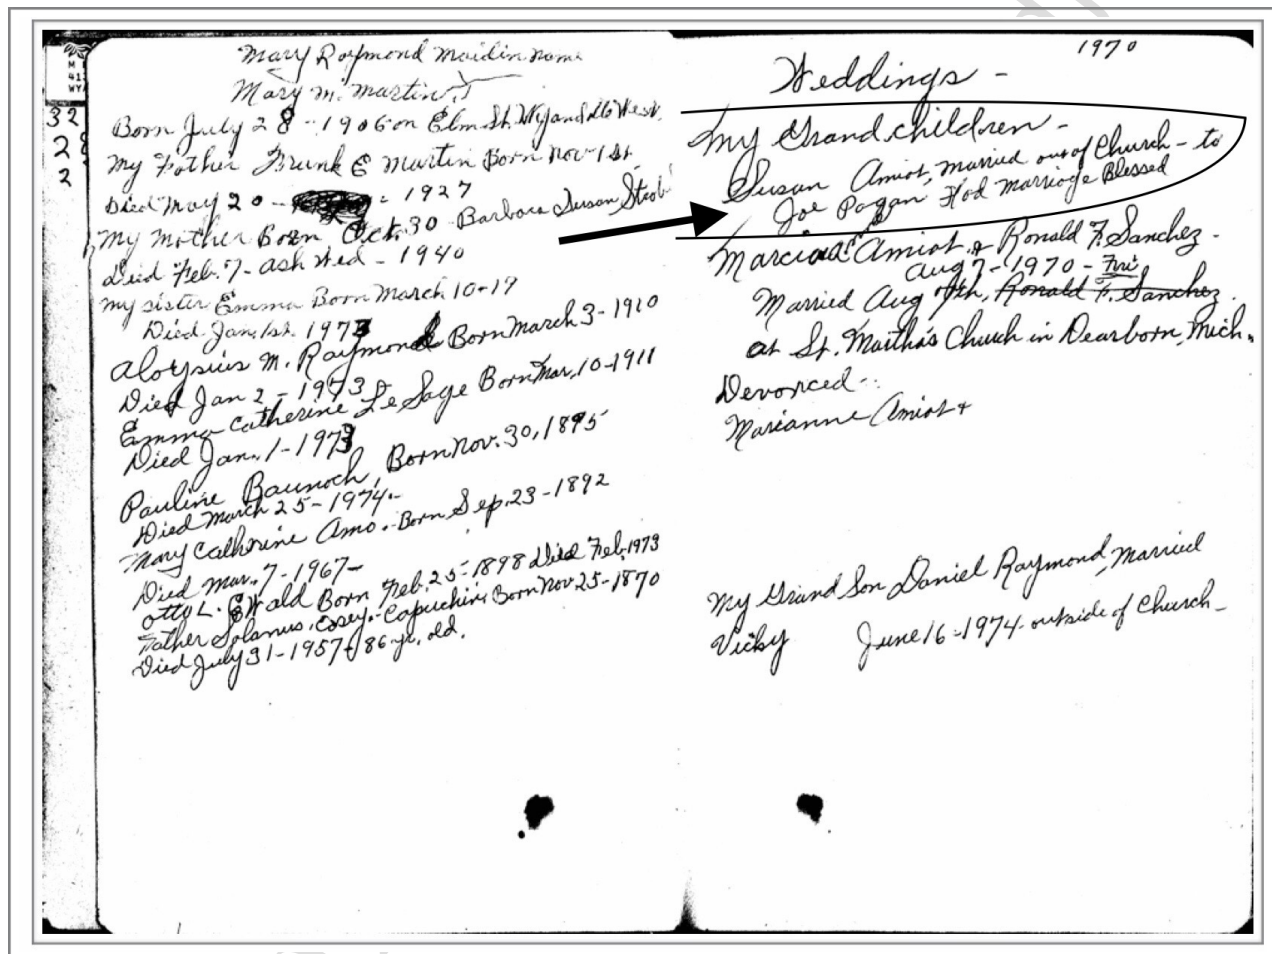 Mary Raymond Maidin name
Mary M. Martin
Born July 28 - 1906 on Elm St. Wyandotte West.
My Father Frank E Martin Born Nov 1st
Died May 20 - 1927
My Mother Born Oct. 30 - Barbara Susan Strob
Died Feb. 7 - Ash Wed - 1940
My sister Emma Born March 10-19
Died Jan. 1st. 1973
Aloysius M. Raymond Born March 3-1910
Died Jan 2 - 1973
Emma Catherine Le Sage Born Mar. 10-1911
Died Jan. 1-1973
Pauline Baunoch, Born Nov. 30, 1895
Died March 25-1974.-
Mary Catherine Amo. - Born Sep. 23-1892
Died Mar. 7-1967-
Otto L. Ewald Born Feb. 25-1898 Died Feb. 1973
Father Solanus. Casey. - Capuchin Born Nov 25-1870
Died July 31-1957 - 86 yr. old.
32
2
2
1970
Weddings -
My Grand children -
Susan Amiot, married out of Church - to
Joe Pagan Had Marriage Blessed
Marcia Amiot & Ronald F. Sanchez -
Aug 7 - 1970 - Fri
Married Aug 7th, Ronald F. Sanchez.
at St. Martha's Church in Dearborn, Mich.
Devorced -
Marianne Amiot +
My Grand Son Daniel Raymond, Married
Vicky June 16-1974 - outside of Church -